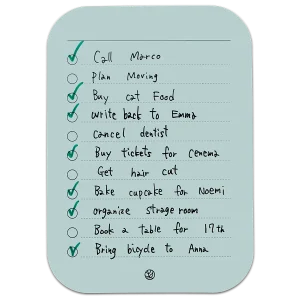 Call Marco
Plan Moving
Buy cat Food
write back to Emma
cancel dentist
Buy tickets for Cenema
Get hair cut
Bake cupcake for Noemi
organize strage room
Book a table for 17th
Bring bicycle to Anna